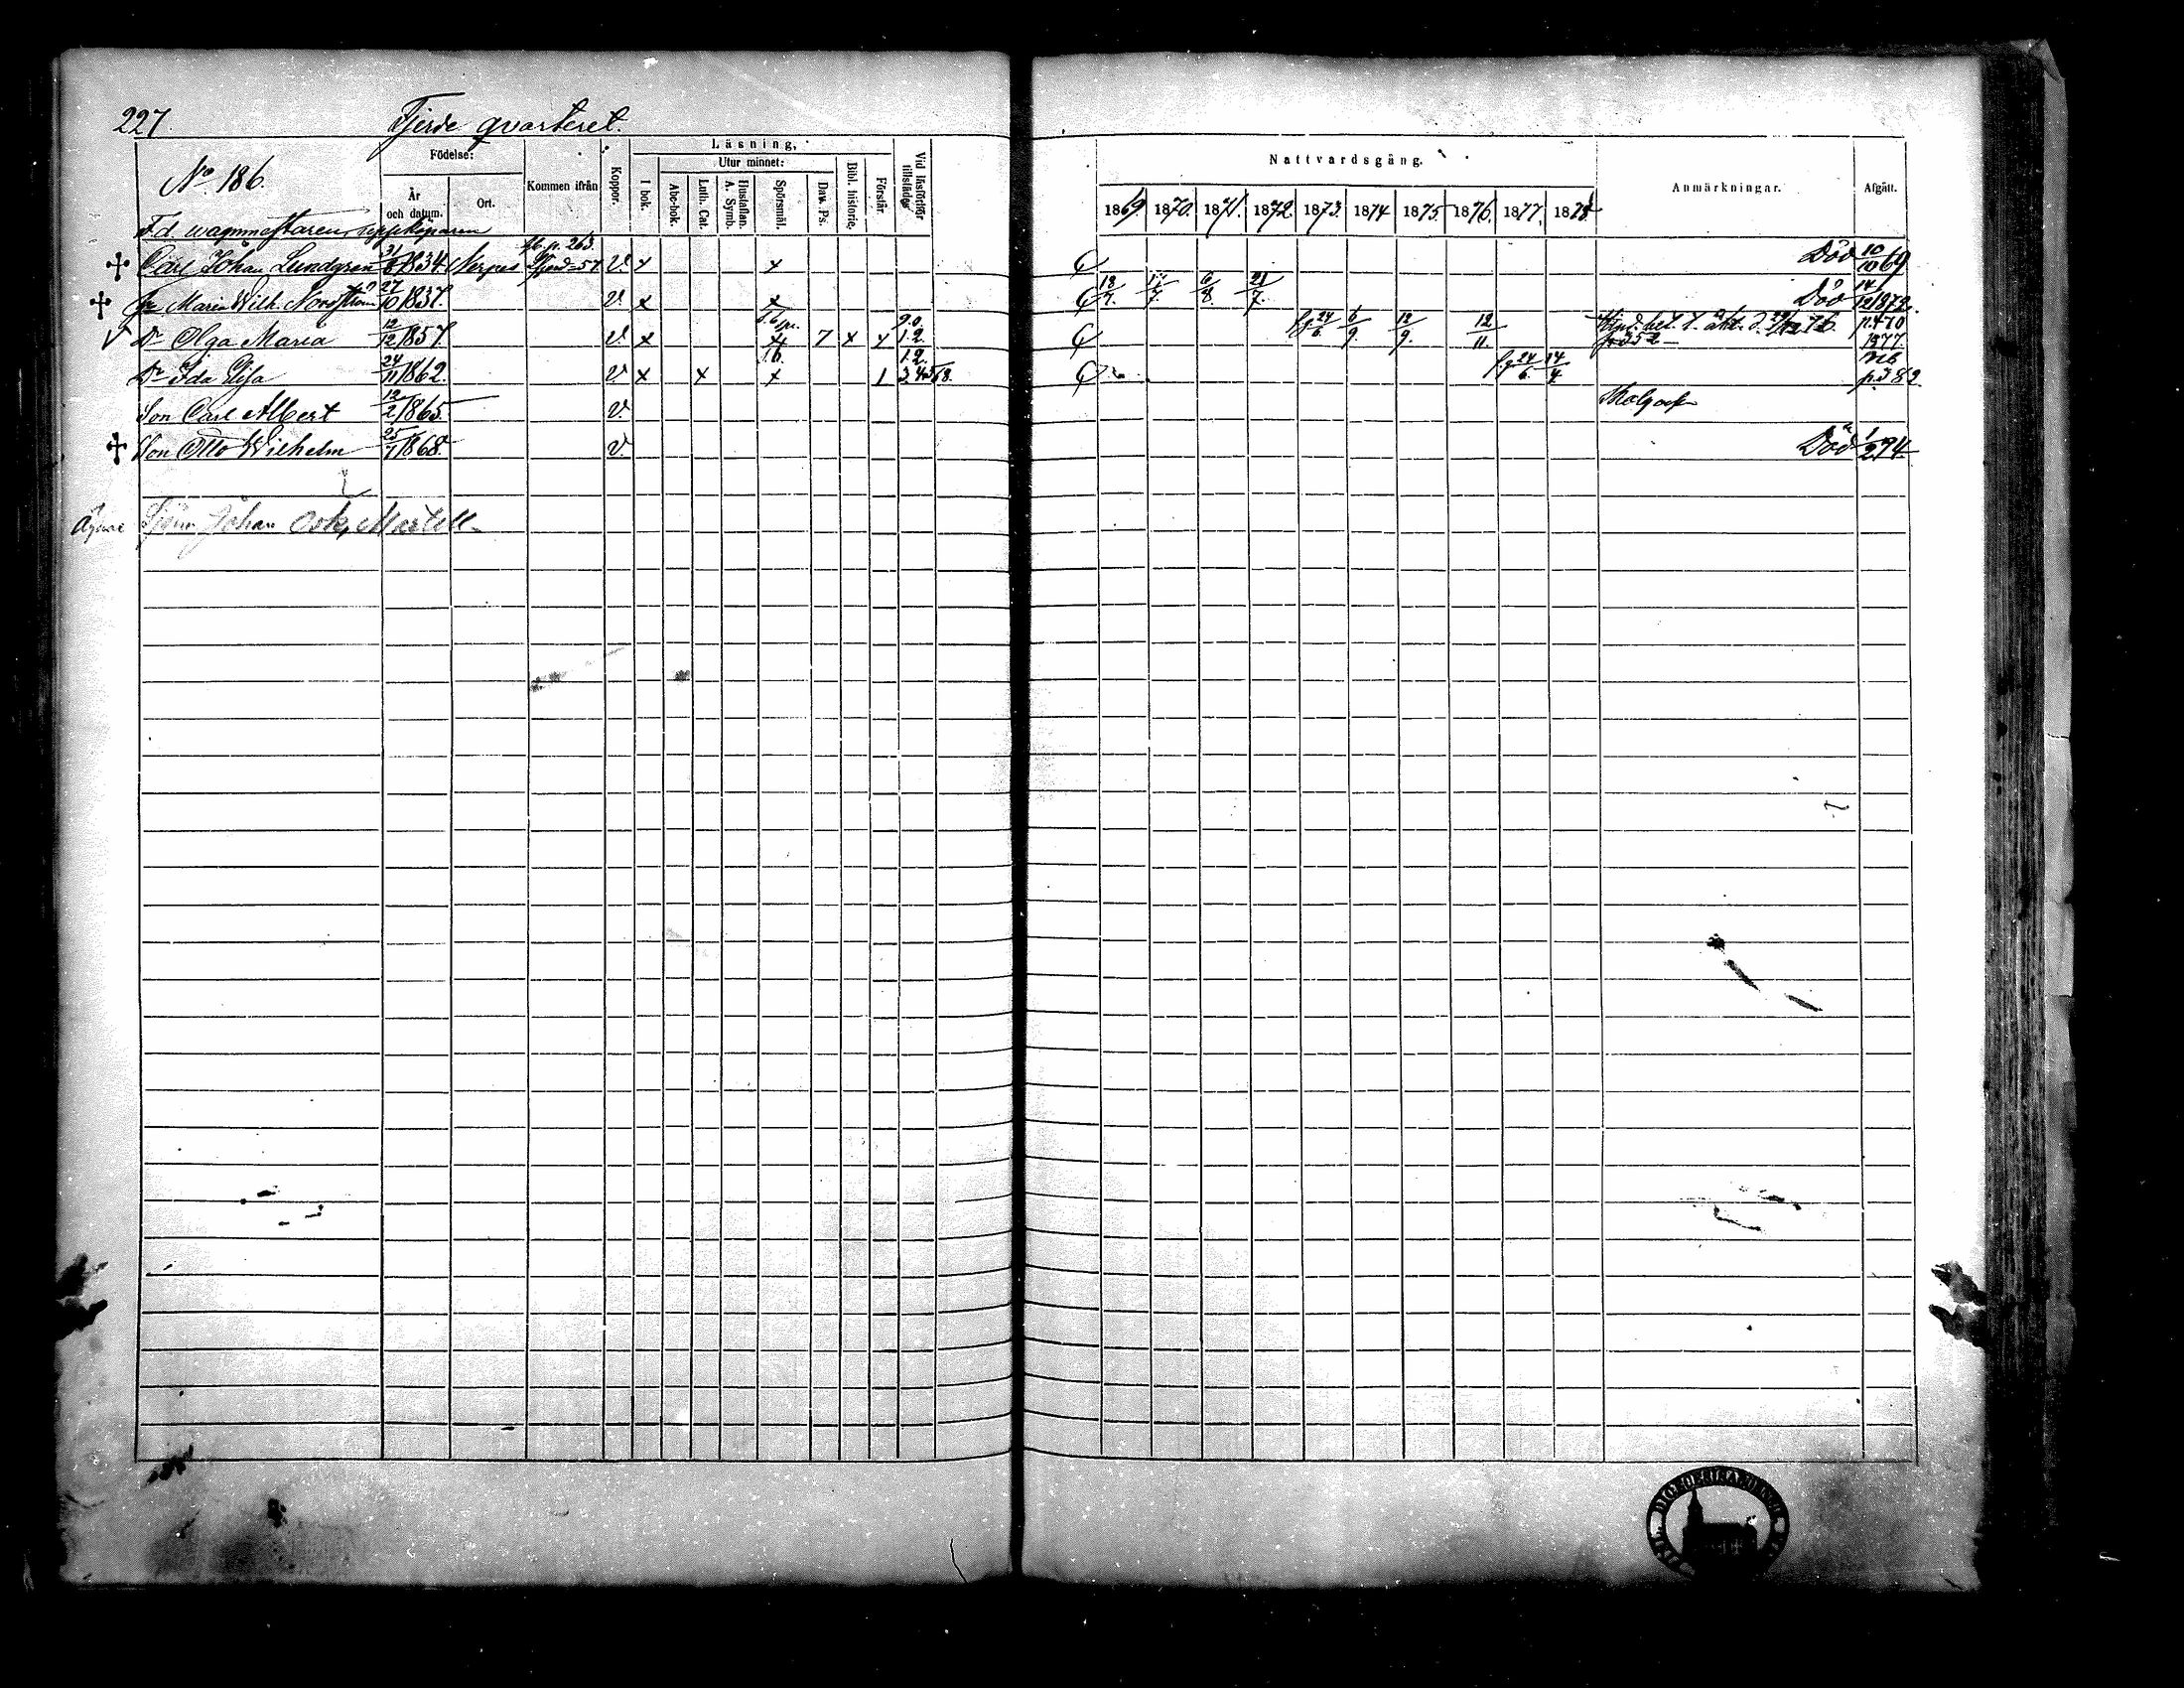 227.
Fjerde qvarteret.
No 186.
Födelse:
År och datum.
Ort.
Kommen ifrån
Koppor.
Läsning,
I bok.
Utur minnet:
Abc-bok.
Luth. Cat.
Hustaflan. A. Symb.
Spörsmål.
Dav. Ps.
Bibl. historie.
Förstår.
Vid läsförhör tillstädes
Nattvardsgång.
1869. 1870. 1871. 1872. 1873. 1874 1875 1876. 1877. 1878
Anmärkningar.
Afgått.
F.d.
Carl Johan Lundgren 31/8 1834. Nerpes p. 263. 57. V. x x Död 10/10 69
Maria Wilh. Norrström 27/10 1837. V. x x 18/7. 17/7. 6/8. 21/7. Död 14/12 1872.
Dr Olga Maria 12/12 1857. V. x x 7 x x 9.0. 1.2. 24/6. 6/9. 12/9. 12/11. p. 470 1877
Dr Ida Elisa 24/11 1862. V. x x x 1 1.2. 3.4.5.6.8. 24/6. 14/4. p. 382
Son Carl Albert 12/2 1865. V.
Son Otto Wilhelm 25/7 1868. V. Död 1/2 74.
Johan Martell